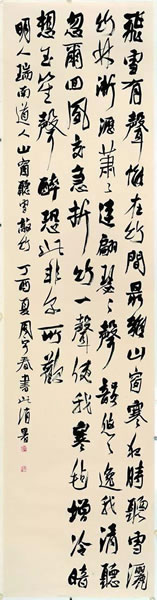 飛雪有聲惟在竹間最雅山窗寒夜時聽雪灑
竹林淅瀝蕭々連翩瑟々聲韻悠然逸我清聽
忽爾回風交急折竹一聲使我寒氈增冷暗
想玉笙聲醉恐此非爾所歡
明人瑞南道人山窗聽雪敲竹丁酉夏周春書此消暑